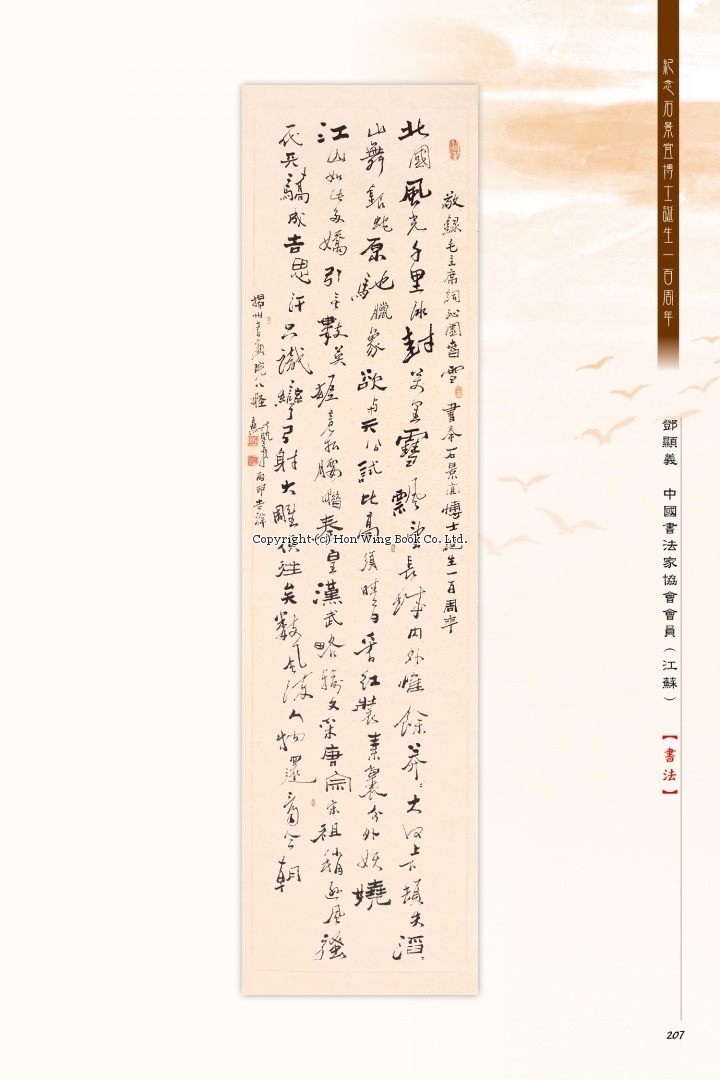 紀念石景宜博士誕生一百周年
鄧顯義 中國書法家協會會員（江蘇）
【書法】
敬録毛主席詞沁園春雪 書奉石景宜博士誕生一百周年
北國風光千里冰封萬里雪飄望長城内外惟餘莽莽大河上下頓失滔滔
山舞銀蛇原馳臘象欲与天公試比高須晴日看紅裝素裹分外妖嬈
江山如此多嬌引無數英雄竟折腰惜秦皇漢武略輸文采唐宗宋祖稍遜風騷
一代天驕成吉思汗只識彎弓射大雕俱往矣數風流人物還看今朝
揚州書畫院八怪
Copyright (c) Hon Wing Book Co. Ltd.
207